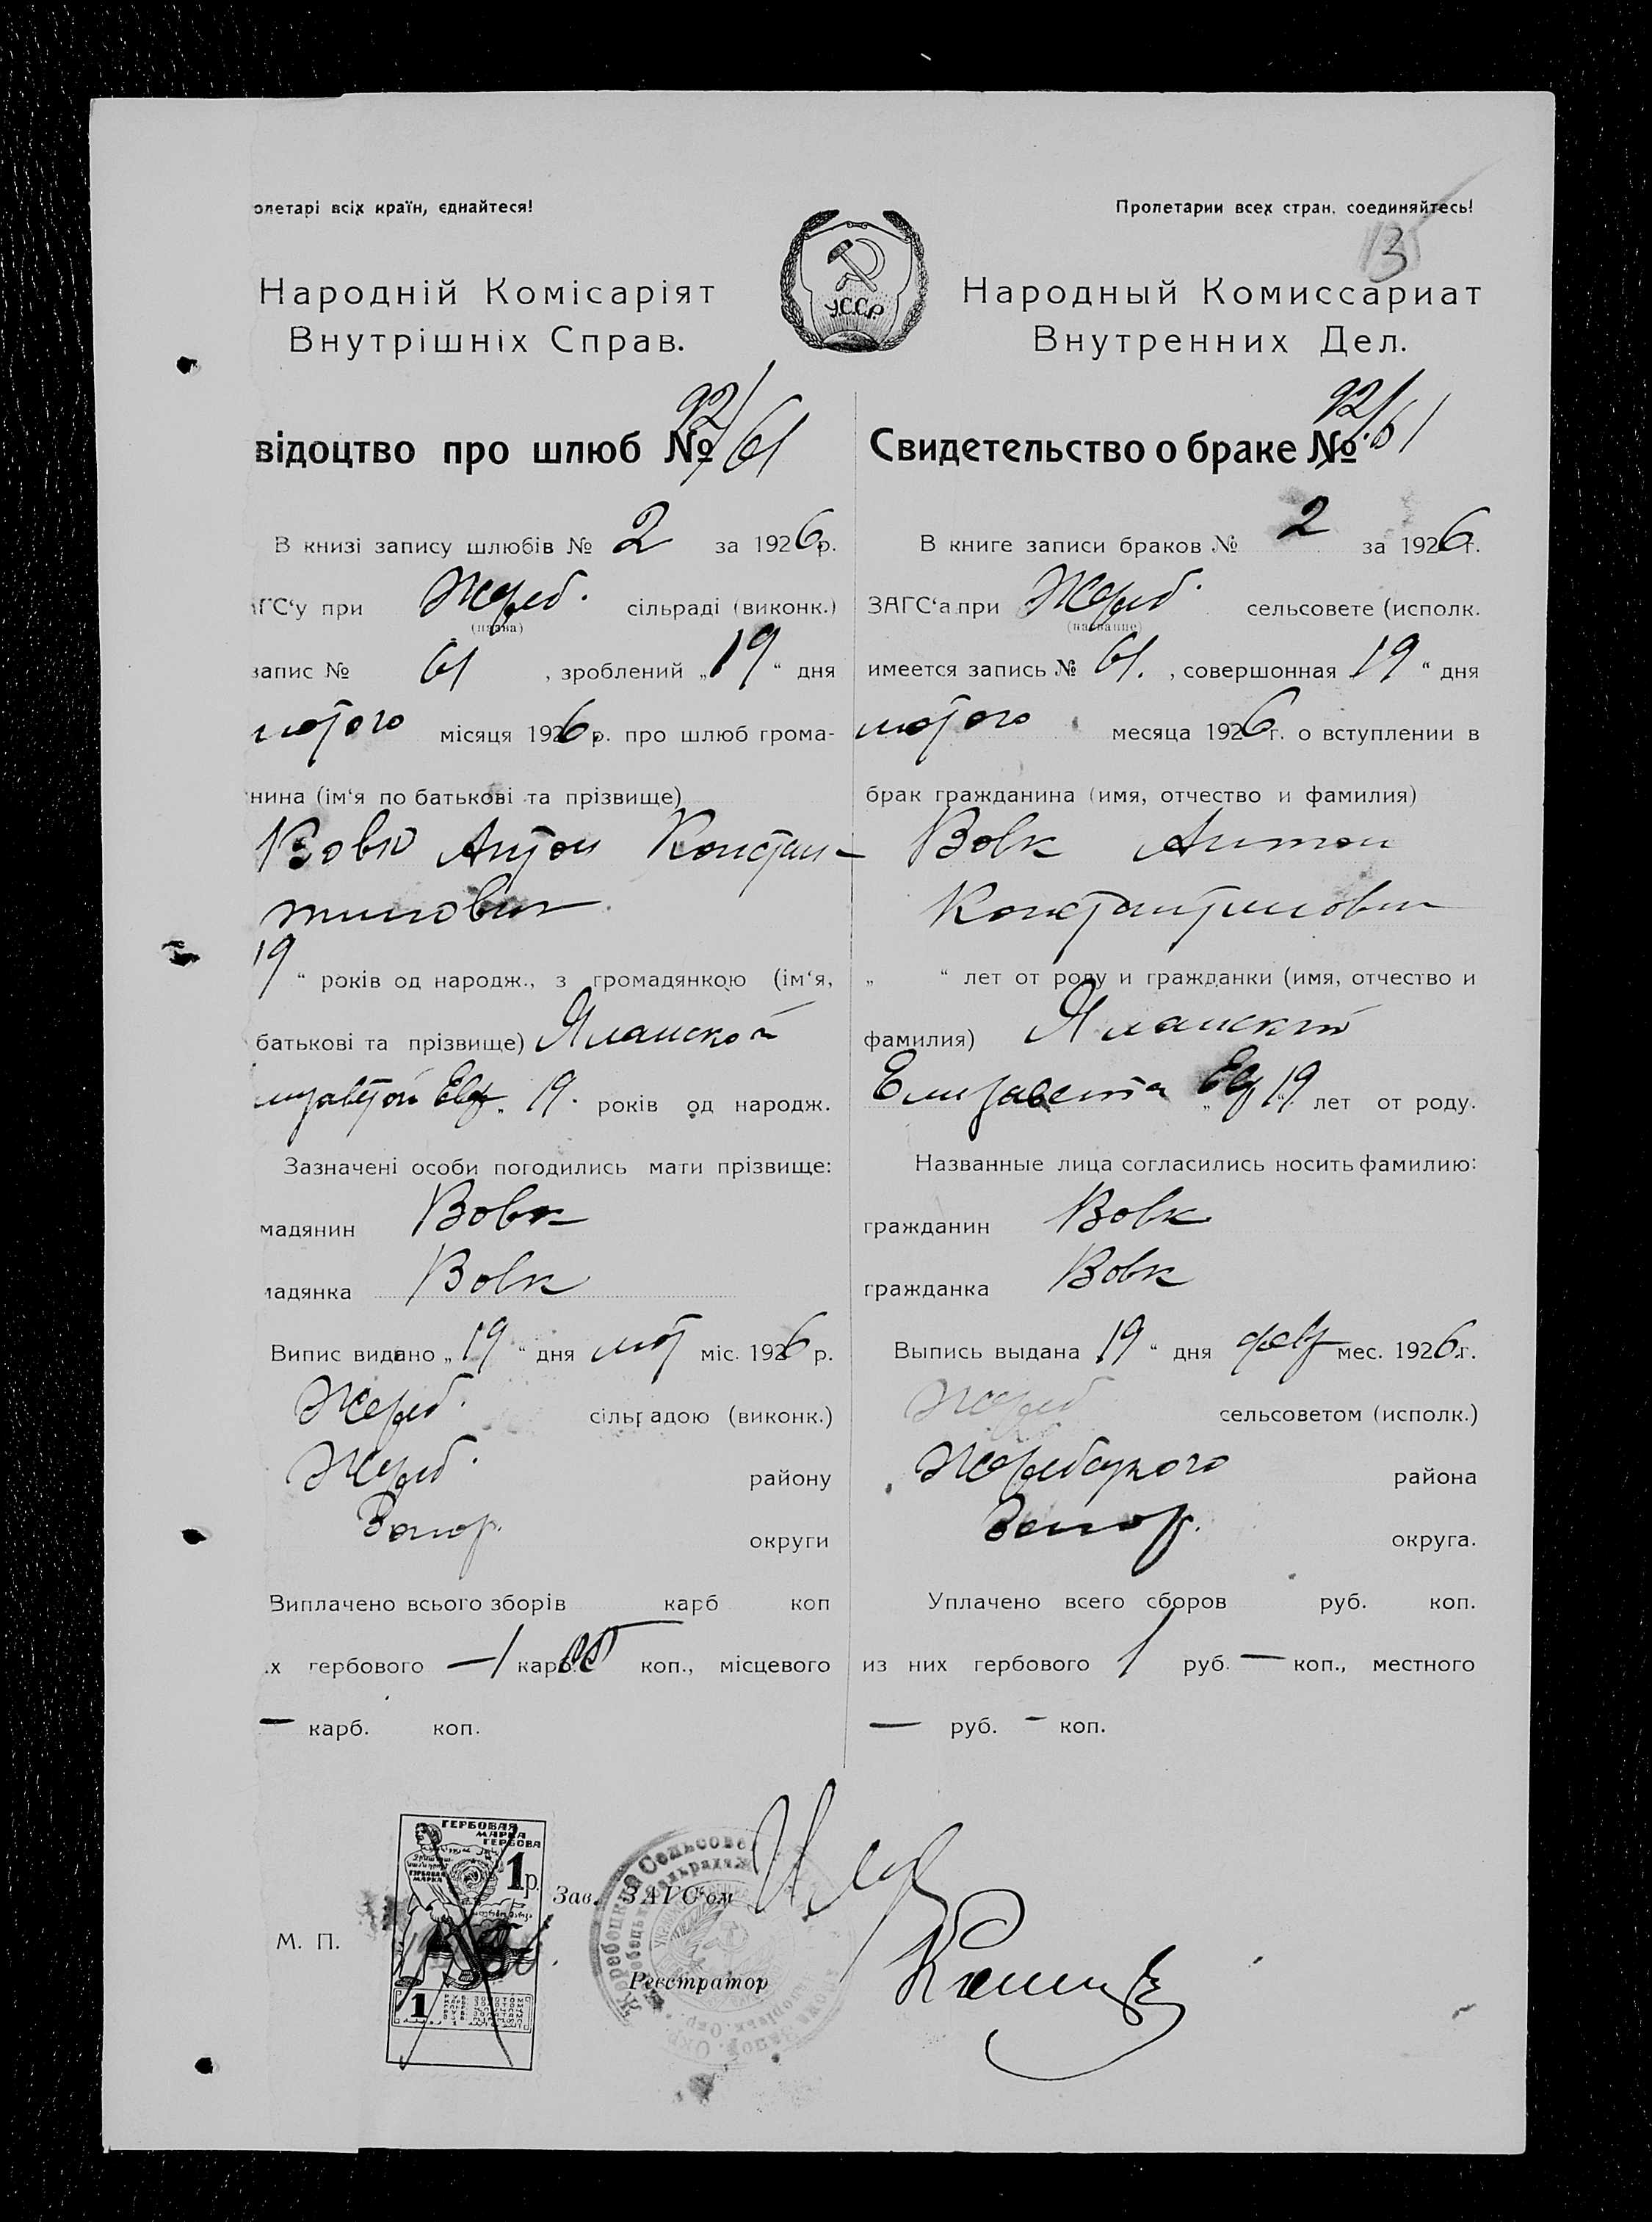 олетарі всіх країн, єднайтеся!
Народній Комісаріят
Внутрішніх Справ.
У.С.С.Р.
Пролетарии всех стран, соединяйтесь!
13
Народный Комиссариат
Внутренних Дел.
відоцтво про шлюб № 92/61
В книзі запису шлюбів № 2 за 1926 р.
ГС‘у при Жереб. сільраді (виконк.)
(назва)
запис № 61, зроблений „19“ дня
лютого місяця 1926 р. про шлюб грома-
нина (ім‘я по батькові та прізвище)
Вовк Антон Констан-
тинович
19 “ років од народж., з громадянкою (ім‘я,
батькові та прізвище) Яланской
лизаветой Евд „ 19. років од народж.
Зазначені особи погодились мати прізвище:
мадянин Вовк
мадянка Вовк
Випис видано „19“ дня лют міс. 1926 р.
Жереб. сільрадою (виконк.)
Жереб. району
Запор. округи
Виплачено всього зборів карб коп
х гербового — 1 карб. коп., місцевого
— карб. коп.
Свидетельство о браке № 92/61
В книге записи браков № 2 за 1926 г.
ЗАГС‘а при Жереб. сельсовете (исполк.
(название)
имеется запись № 61., совершонная 19 “ дня
лютого месяца 1926 г. о вступлении в
брак гражданина (имя, отчество и фамилия)
Вовк Антон
Константинович
„ “ лет от роду и гражданки (имя, отчество и
фамилия) Яланской
Елизавета Евд „19 лет от роду.
Названные лица согласились носить фамилию:
гражданин Вовк
гражданка Вовк
Выпись выдана 19 “ дня февр мес. 1926 г.
Жереб сельсоветом (исполк.)
Жеребецкого района
Запор. округа.
Уплачено всего сборов руб. коп.
из них гербового 1 руб. — коп., местного
— руб. — коп.
ГЕРБОВАЯ
МАРКА
ГЕРБОВА
1 р.
1
М. П.
Зав. ЗАГС‘ом
Реєстратор
Жеребецкий Сельсове